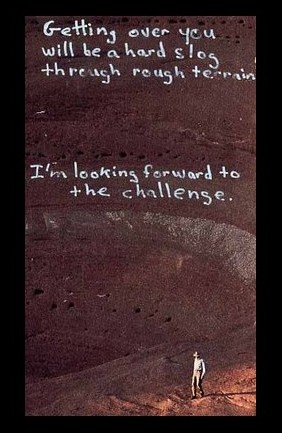 Getting over you
will be a hard slog
through rough terrain
I'm looking forward to
the challenge.